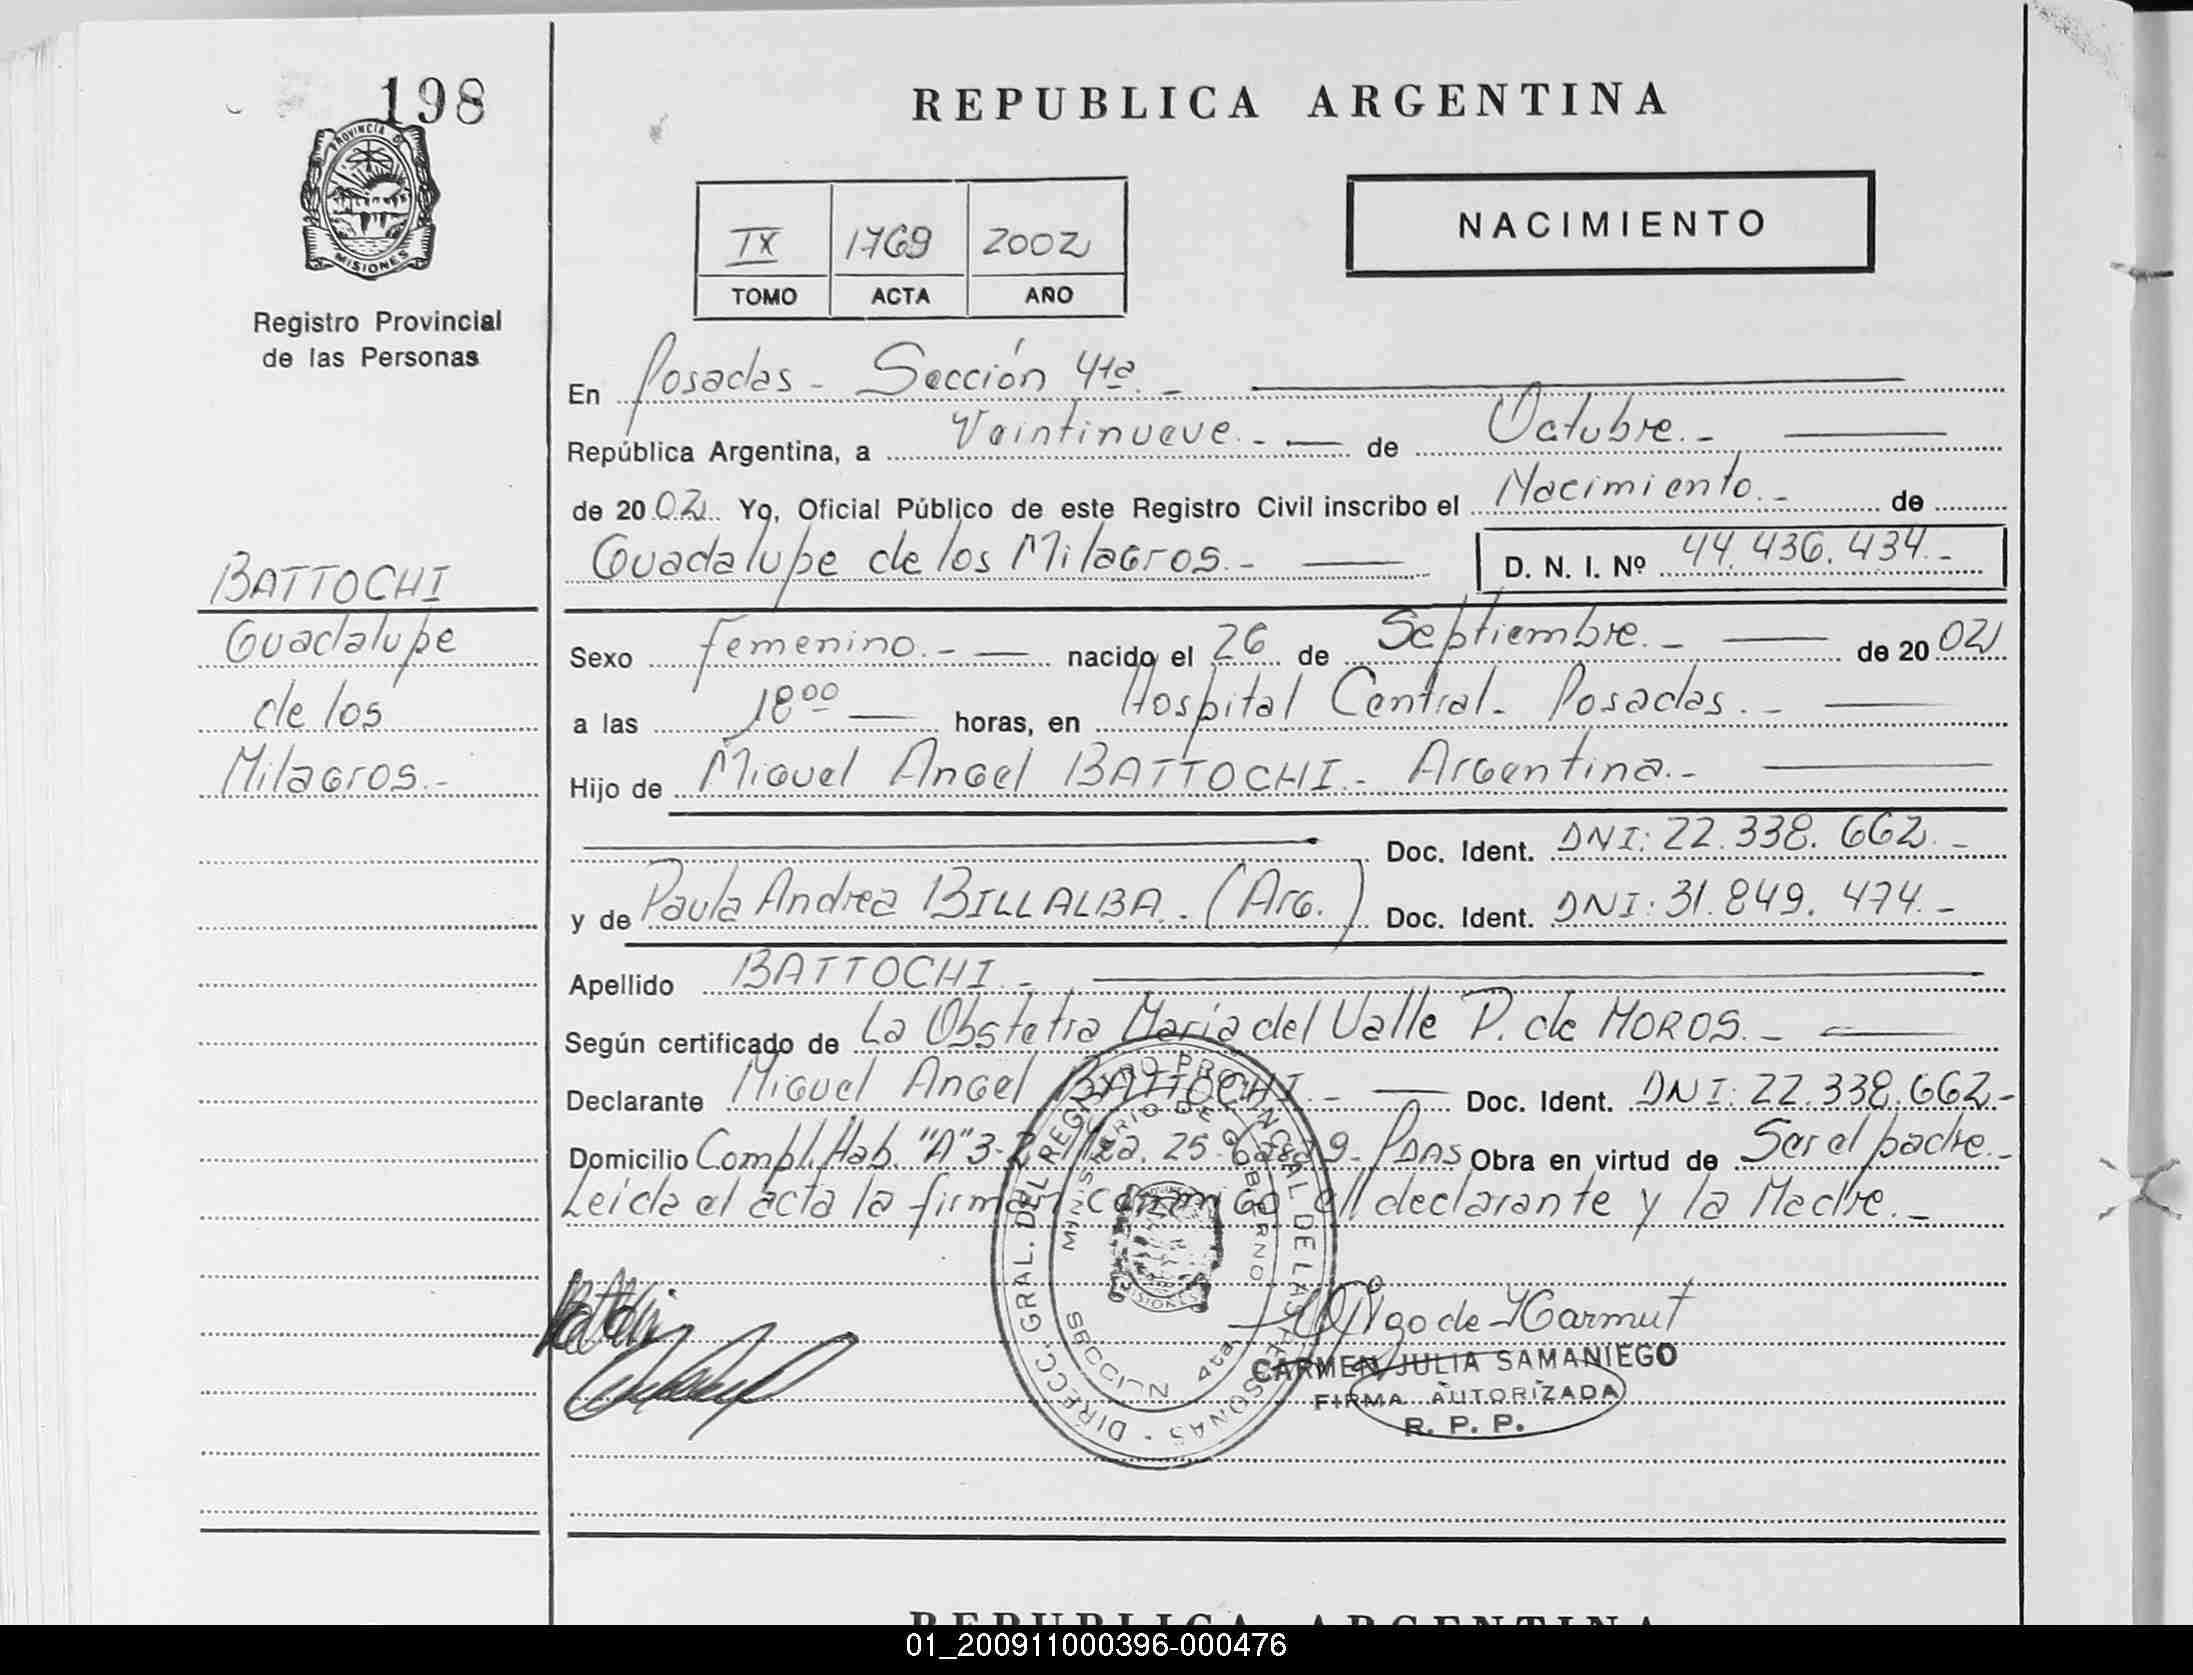 198
PROVINCIA D
MISIONES
Registro Provincial
de las Personas
BATTOCHI
Guadalupe
de los
Milagros.-
REPUBLICA ARGENTINA
IX 1769 2002
TOMO ACTA AÑO
NACIMIENTO
En Posadas - Sección 4ta.-
República Argentina, a Veintinueve.- de Octubre.-
de 2002 Yo, Oficial Público de este Registro Civil inscribo el Nacimiento.- de
Guadalupe de los Milagros.- D. N. I. Nº 44.436.434.-
Sexo Femenino.- nacido el 26 de Septiembre.- de 2002
a las 18 00 horas, en Hospital Central - Posadas.-
Hijo de Miguel Angel BATTOCHI.- Argentina.-
Doc. Ident. DNI: 22.338.662.-
y de Paula Andrea BILLALBA.. (Arg.) Doc. Ident. DNI: 31.849.474.-
Apellido BATTOCHI.-
Según certificado de La Obstetra María del Valle P. de MOROS.-
Declarante Miguel Angel BATTOCHI.- Doc. Ident. DNI: 22.338.662-
Domicilio Compl. Hab. "A" 3-2 Mza. 25 - Casa 9 - Pdas Obra en virtud de Ser el padre.-
Leída el acta la firman conmigo el declarante y la Madre.-
DIRECC. GRAL. DEL REGISTRO PROVINCIAL DE LAS PERSONAS
MINISTERIO DE GOBIERNO
SECCION 4ta.
MISIONES
CARMEN JULIA SAMANIEGO
FIRMA AUTORIZADA
R. P. P.
REPUBLICA ARGENTINA
01_200911000396-000476